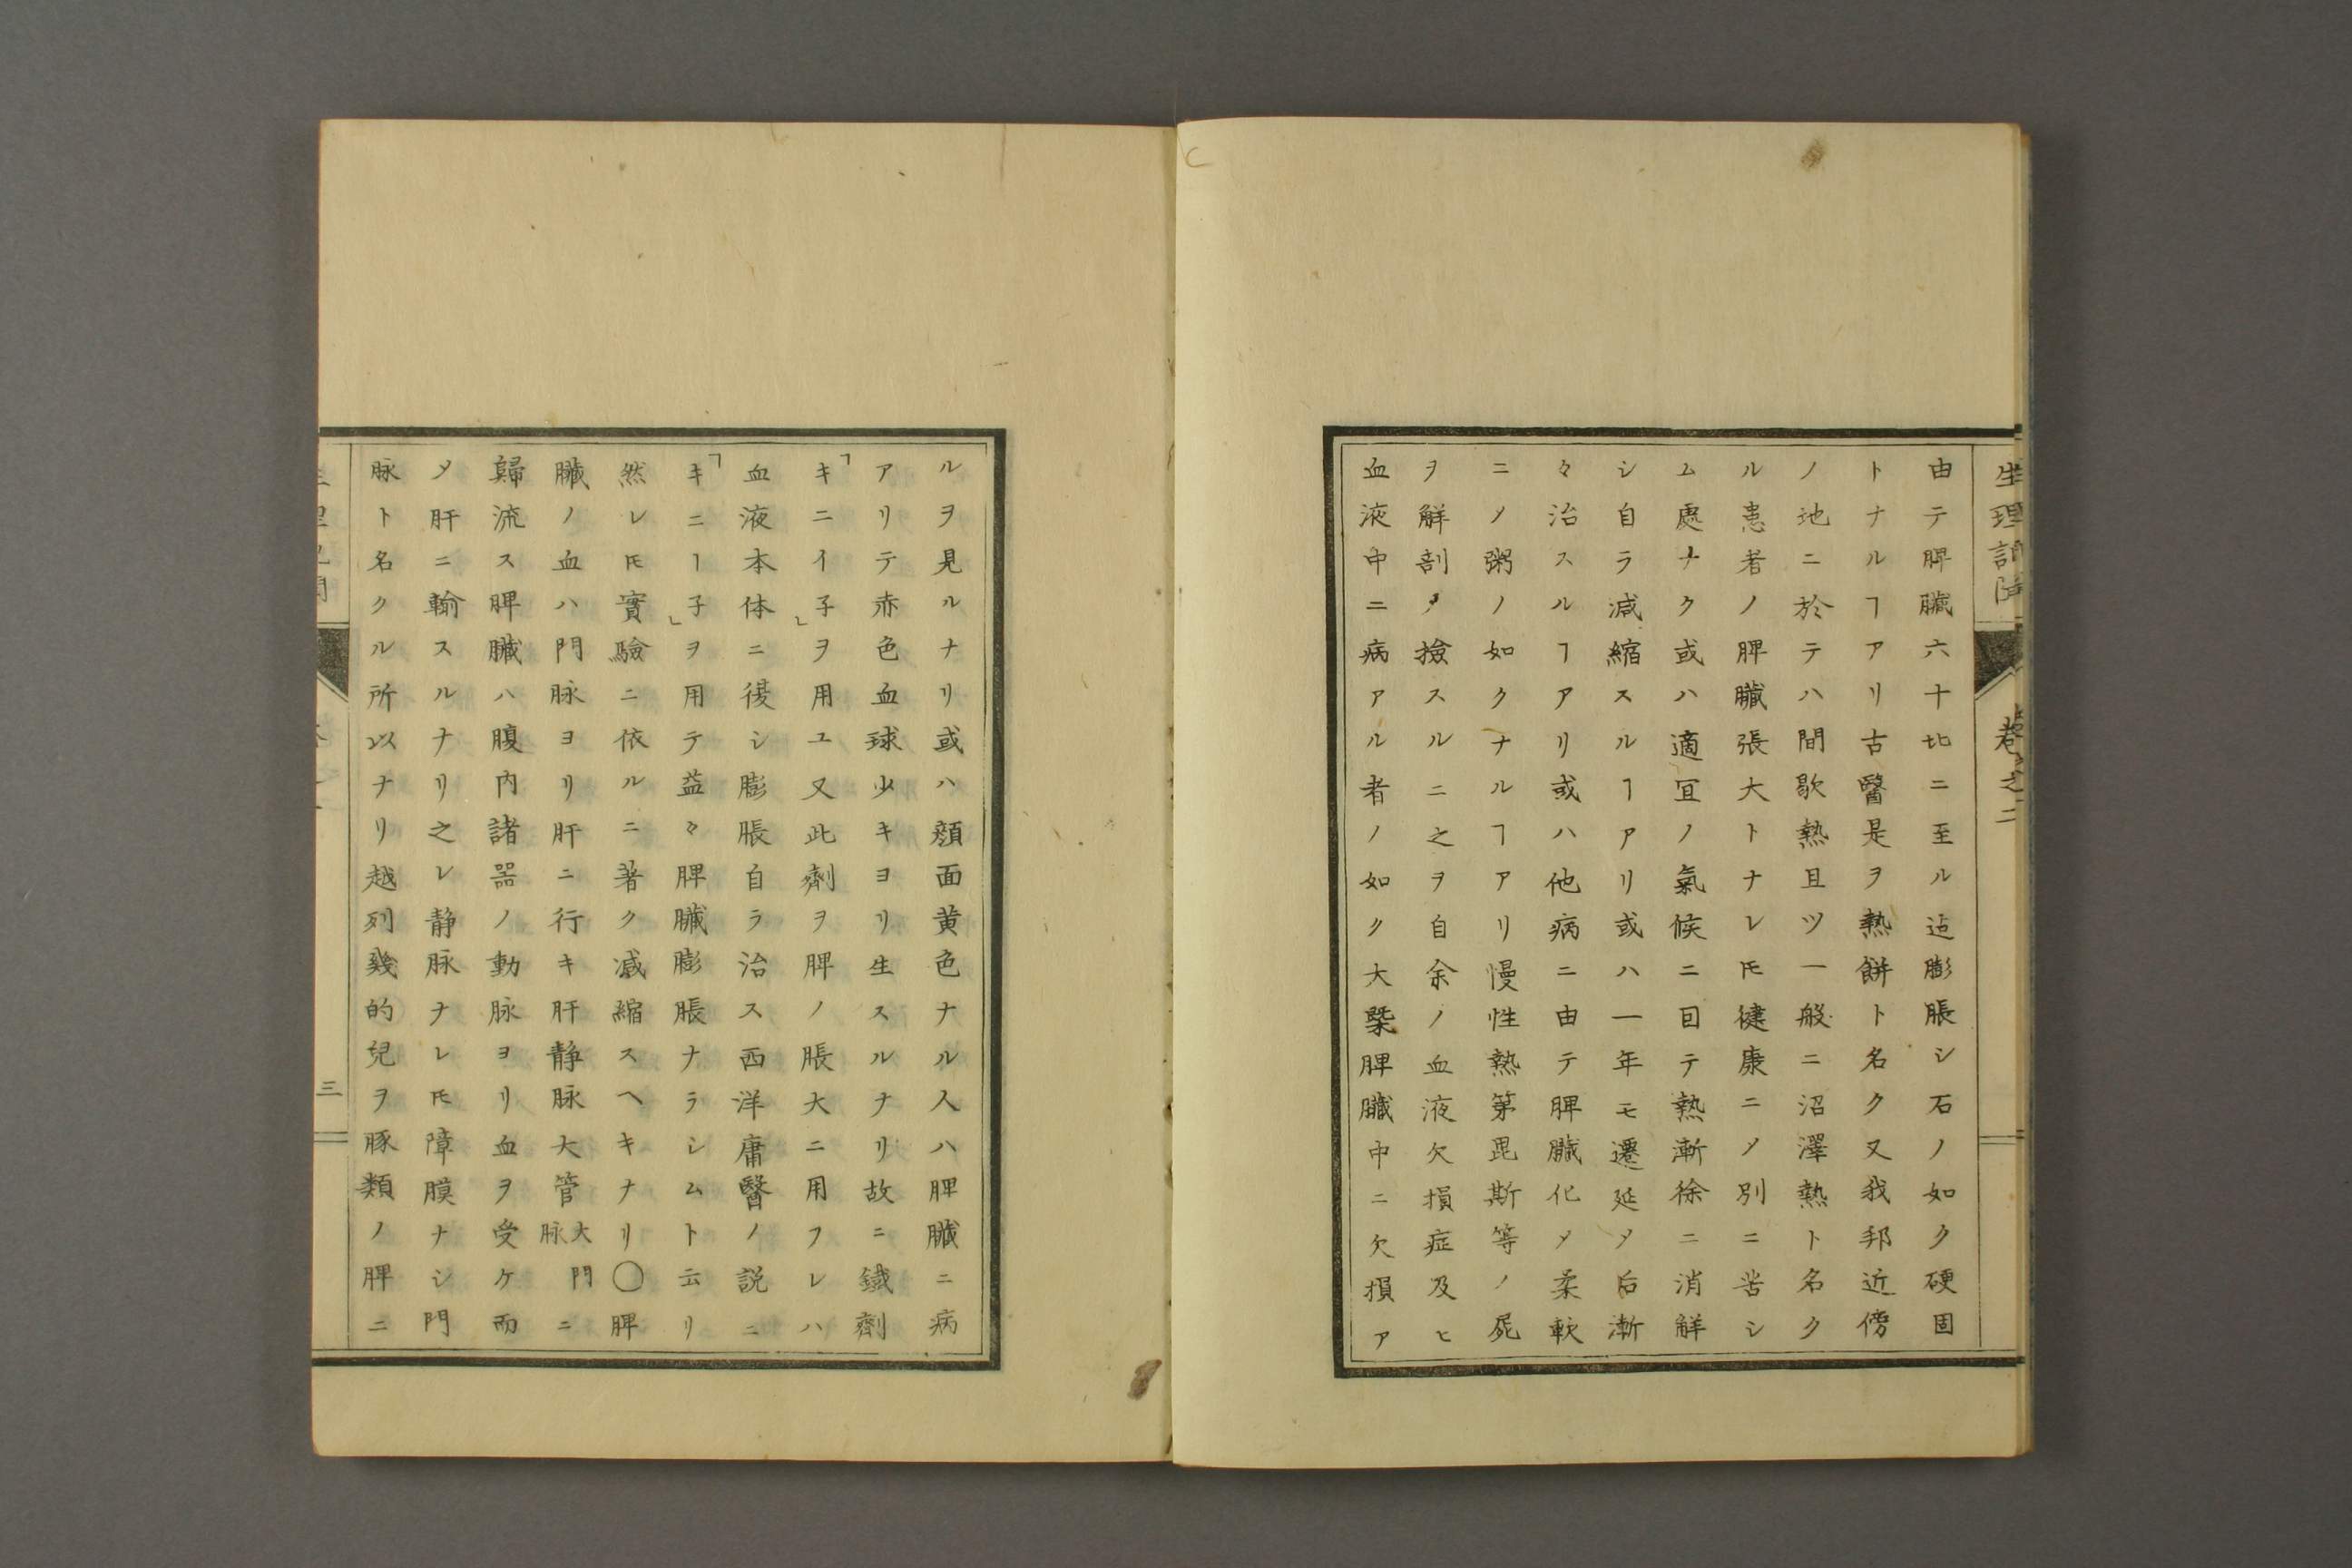 生理訓
巻之二
由テ脾臓六十七ニ至ル迠膨脹シ石ノ如ク硬固
トナルヿアリ古醫是ヲ熱餅ト名ク又我邦近傍
ノ地ニ於テハ間歇熱且ツ一般ニ沼澤熱ト名ク
ル患者ノ脾臓張大トナレ𪜈健康ニノ別ニ苦シ
ム處ナク或ハ適宜ノ氣候ニ因テ熱漸徐ニ消觧
シ自ラ减縮スルヿアリ或ハ一年モ遷延〆后漸
々治スルヿアリ或ハ他病ニ由テ脾臓化〆柔軟
ニ〆粥ノ如クナルヿアリ慢性熱第毘斯等ノ屍
ヲ觧剖〆撿スルニ之ヲ自余ノ血液欠損症及ヒ
血液中ニ病アル者ノ如ク大槩脾臓中ニ欠損ア
ルヲ見ルナリ或ハ顔面黄色ナル人ハ脾臓ニ病
アリテ赤色血球少キヨリ生スルナリ故ニ鐵劑
「キニイ子」ヲ用ユ又此劑ヲ脾ノ脹大ニ用フレハ
血液本体ニ復シ膨脹自ラ治ス西洋庸醫ノ説ニ
「キニー子」ヲ用テ益々脾臓膨脹ナラシムト云リ
然レ𪜈實驗ニ依ルニ著ク减縮スヘキナリ〇脾
臓ノ血ハ門脉ヨリ肝ニ行キ肝静脉大管大門脉ニ
歸流ス脾臓ハ腹内諸器ノ動脉ヨリ血ヲ受ケ而
〆肝ニ輸スルナリ之レ静脉ナレ𪜈障膜ナシ門
脉ト名クル所以ナリ越列幾的兒ヲ豚類ノ脾ニ
三